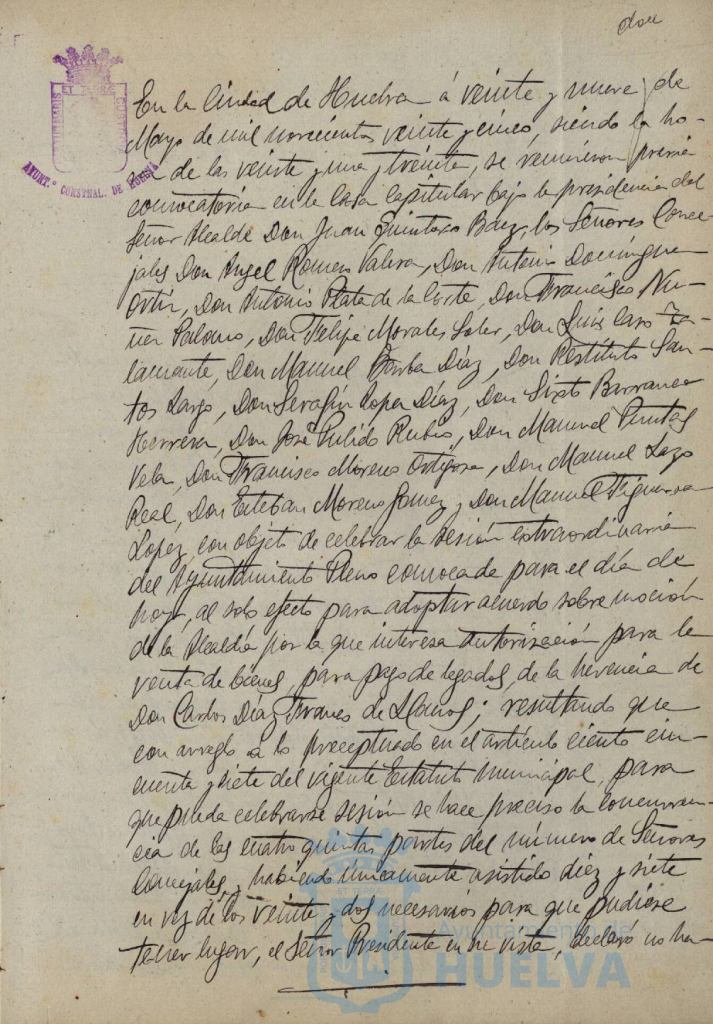 doce
En la Ciudad de Huelva á veinte y nueve de
Mayo de mil novecientos veinte y cinco, siendo la ho-
ra de las veinte y una y treinta, se reunieron previa
convocatoria en la Casa Capitular bajo la presidencia del
Señor Alcalde Don Juan Quintero Baez, los Señores Conce-
jales Don Angel Romero Valera, Don Antonio Domínguez
Ortiz, Don Antonio Plata de la Corte, Don Francisco Nu-
ñez Palomo, Don Felipe Morales Soler, Don Luis Caro
lamante, Don Manuel Barba Díaz, Don Restituto San-
tos Largo, Don Serafín Lopez Díaz, Don Sixto Barranco
Herrera, Don José Pulido Rubio, Don Manuel Puntas
Vela, Don Francisco Moreno Ortigosa, Don Manuel Lazo
Real, Don Esteban Moreno Gomez y Don Manuel Figueroa
Lopez, con objeto de celebrar la sesión extraordinaria
del Ayuntamiento Pleno convocada para el día de
hoy, al solo efecto para adoptar acuerdo sobre moción
de la Alcaldía por la que interesa autorización para la
venta de bienes, para pago de legados, de la herencia de
Don Carlos Díaz Franco de Llanos; resultando que
con arreglo a lo preceptuado en el artículo ciento cin-
cuenta y siete del vigente Estatuto Municipal, para
que pueda celebrarse sesión se hace preciso la concurren-
cia de las cuatro quintas partes del número de Señores
Concejales y habiendo únicamente asistido diez y siete
en vez de los veinte y dos necesarios para que pudiese
tener lugar, el Señor Presidente en su vista, declaró no ha-
AYUNT.º CONSTNAL. DE HUELVA
Ayuntamiento de
HUELVA